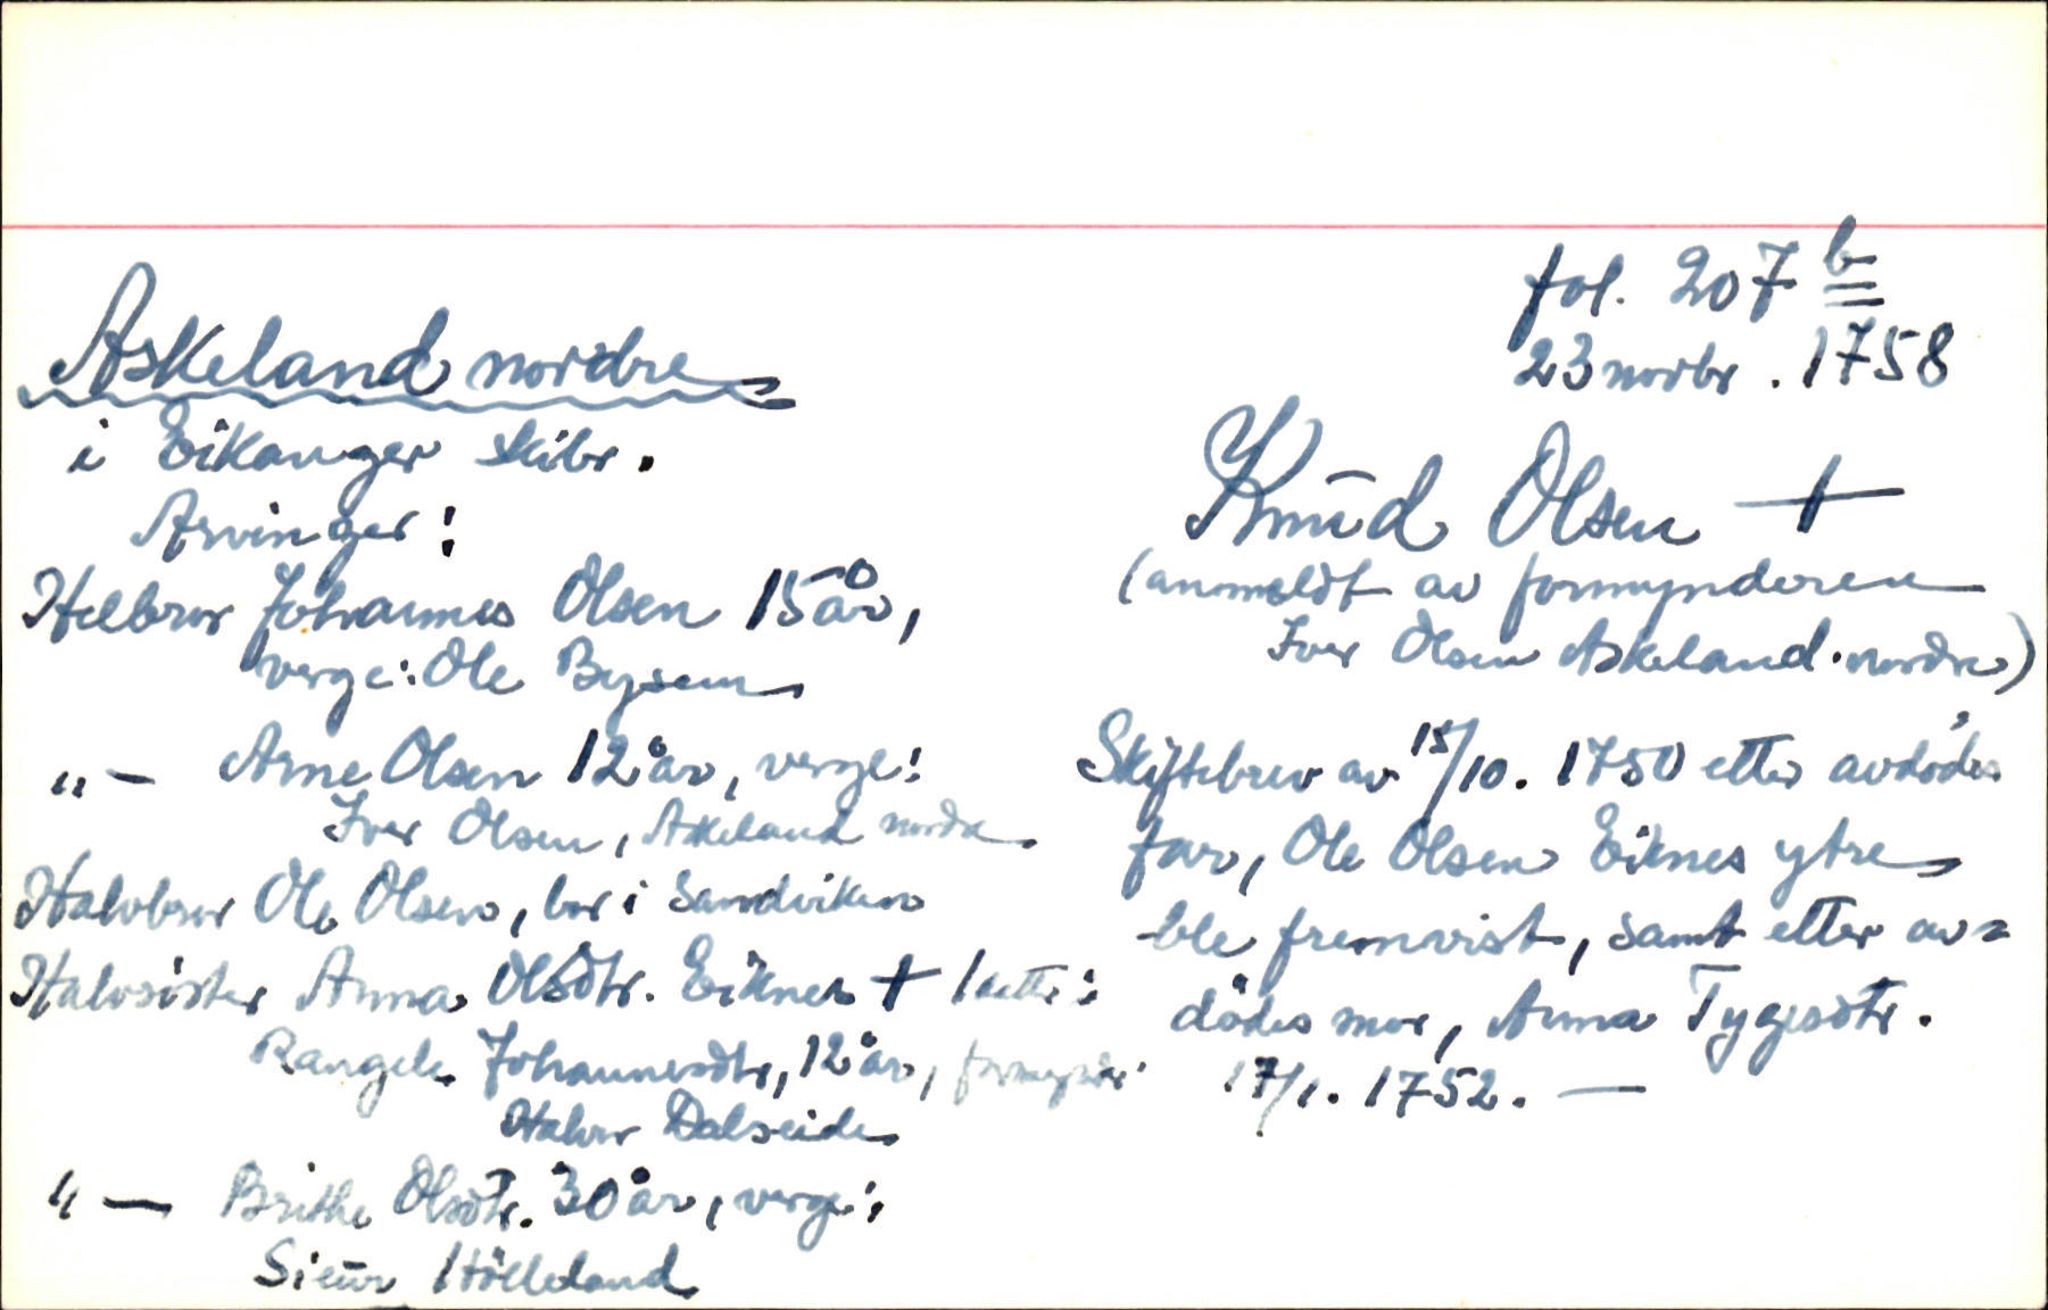 fol. 207 b
23 novbr. 1758
Askeland nordre
i Eikanger skibr.
Arvinger:
Helbror Johannes Olsen 15 år,
verge: Ole Bysem
"— Arne Olsen 12 år, verge:
Iver Olsen, Askeland nordre
Halvbror Ole Olsen, bor i Sandviken
Halvsister Anna Olsdtr. Eiknes + 1 dette:
Rangele Johannesdtr, 12 år, formynder:
Halvor Dalseide
"— Brithe Olsdtr. 30 år, verge:
Siŭr Hölleland
Knūd Olsen +
(anmeldt av formynderen
Iver Olsen Askeland nordre)
Skiftebrev av 15/10. 1750 etter avdødes
far, Ole Olsen Eiknes ytre
ble fremvist, samt etter av=
dödes mor, Anna Tygesdtr.
17/1. 1752. —